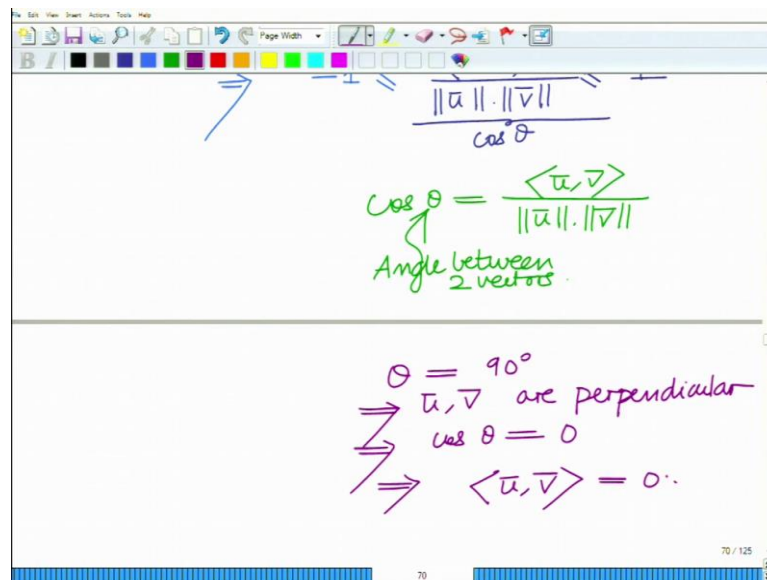 File Edit View Insert Actions Tools Help
Page Width
B I
⇒ -1 ≤ ≤ 1
||ū||.||v̄||
cos θ
cos θ = <ū, v̄> / ||ū||.||v̄||
Angle between
2 vectors.
θ = 90°
⇒ ū, v̄ are perpendicular
⇒ cos θ = 0
⇒ <ū, v̄> = 0.
70 / 125
70